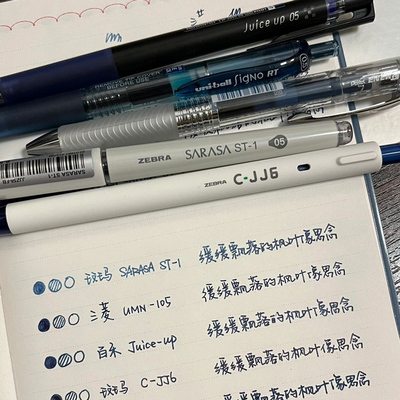 Juice up 05
BEFORE USE
uni-ball Signo RT
ZEBRA SARASA ST-1 05
SARASA ST-1
ZEBRA C-JJ6
斑马 SARASA ST-1 缓缓飘落的枫叶像思念
三菱 UMN-105 缓缓飘落的枫叶像思念
百乐 Juice-up 缓缓飘落的枫叶像思念
斑马 C-JJ6 缓缓飘落的枫叶像思念
缓缓飘落的枫叶像思念